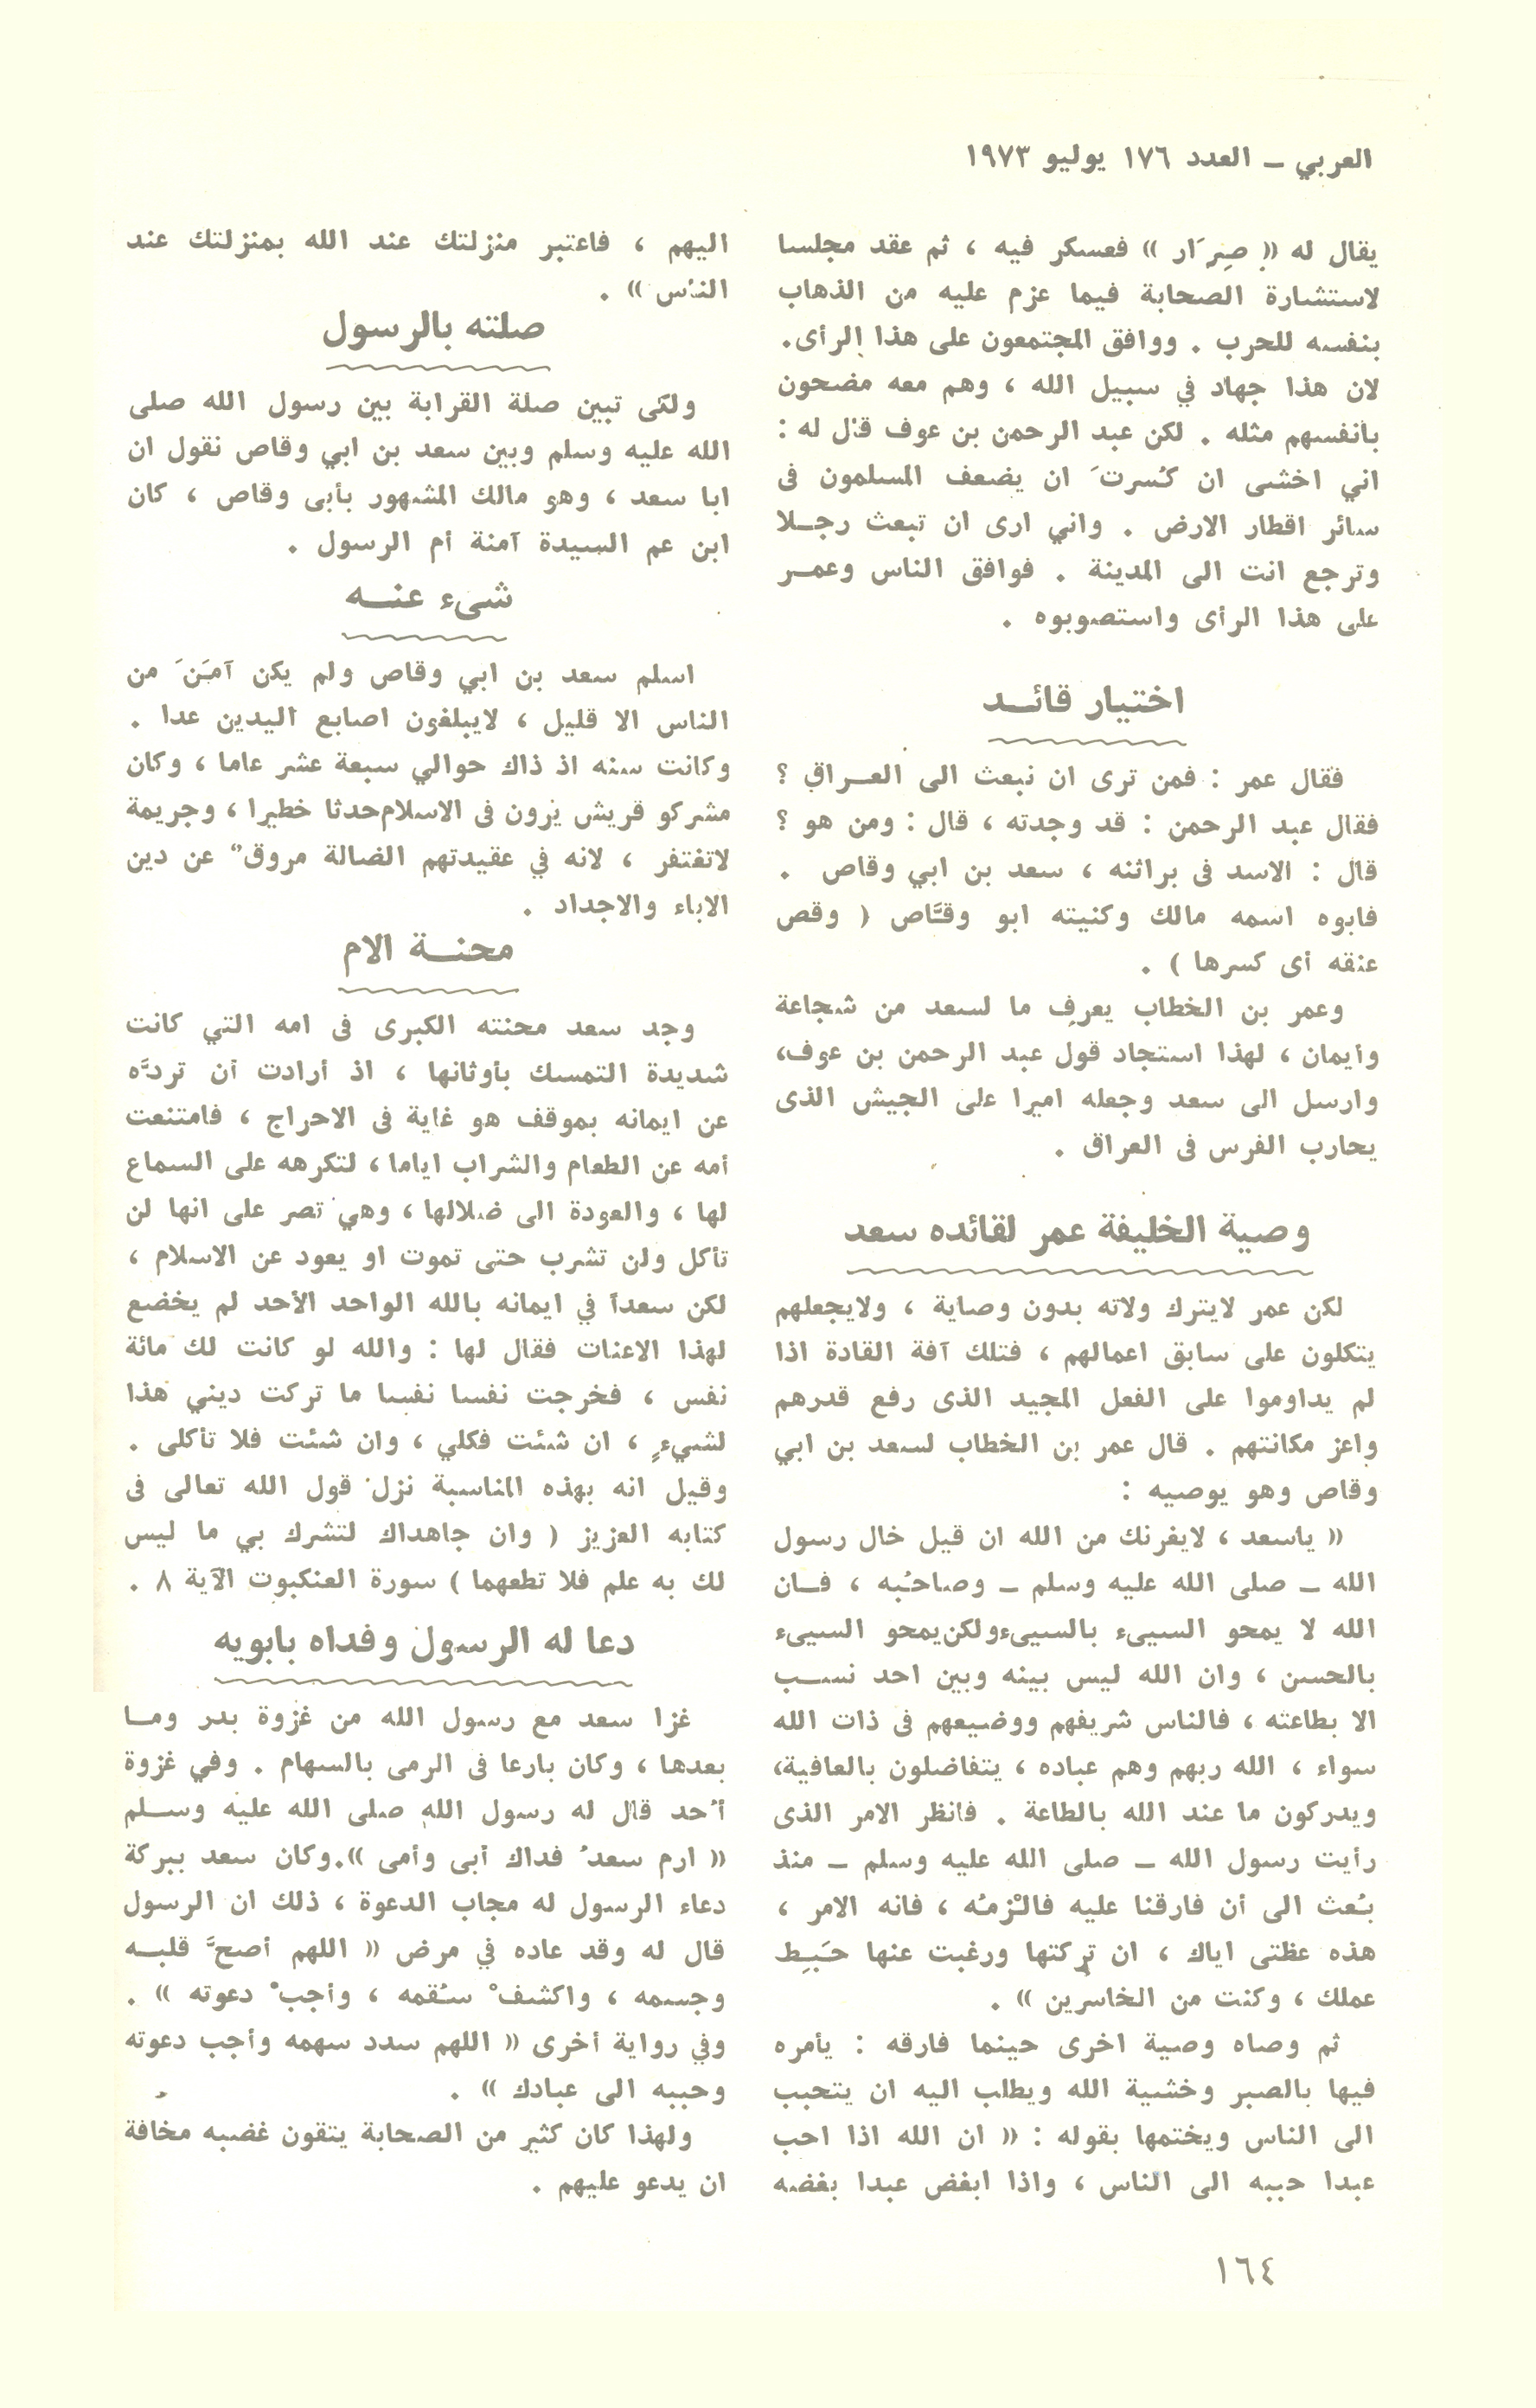 العربي ـ العدد ١٧٦ يوليو ١٩٧٣
يقال له « صِرَار » فعسكر فيه ، ثم عقد مجلسا
لاستشارة الصحابة فيما عزم عليه من الذهاب
بنفسه للحرب . ووافق المجتمعون على هذا الرأى.
لان هذا جهاد في سبيل الله ، وهم معه مضحون
بأنفسهم مثله . لكن عبد الرحمن بن عوف قال له :
اني اخشى ان كُسرتَ ان يضعف المسلمون فى
سائر اقطار الارض . واني ارى ان تبعث رجـلا
وترجع انت الى المدينة . فوافق الناس وعمـر
على هذا الرأى واستصوبوه .
اختيار قائــد
فقال عمر : فمن ترى ان نبعث الى العـراق ؟
فقال عبد الرحمن : قد وجدته ، قال : ومن هو ؟
قال : الاسد فى براثنه ، سعد بن ابي وقاص .
فابوه اسمه مالك وكنيته ابو وقَّاص ( وقص
عنقه أى كسرها ) .
وعمر بن الخطاب يعرف ما لسعد من شجاعة
وايمان ، لهذا استجاد قول عبد الرحمن بن عوف،
وارسل الى سعد وجعله اميرا على الجيش الذى
يحارب الفرس فى العراق .
وصية الخليفة عمر لقائده سعد
لكن عمر لايترك ولاته بدون وصاية ، ولايجعلهم
يتكلون على سابق اعمالهم ، فتلك آفة القادة اذا
لم يداوموا على الفعل المجيد الذى رفع قدرهم
واعز مكانتهم . قال عمر بن الخطاب لسعد بن ابي
وقاص وهو يوصيه :
« ياسعد ، لايغرنك من الله ان قيل خال رسول
الله ـ صلى الله عليه وسلم ـ وصاحبُه ، فـان
الله لا يمحو السيىء بالسيىءولكن يمحو السيىء
بالحسن ، وان الله ليس بينه وبين احد نسـب
الا بطاعته ، فالناس شريفهم ووضيعهم فى ذات الله
سواء ، الله ربهم وهم عباده ، يتفاضلون بالعافية،
ويدركون ما عند الله بالطاعة . فانظر الامر الذى
رأيت رسول الله ـ صلى الله عليه وسلم ـ منذ
بُعث الى أن فارقنا عليه فالْزمُه ، فانه الامر ،
هذه عظتى اياك ، ان تركتها ورغبت عنها حَبِط
عملك ، وكنت من الخاسرين » .
ثم وصاه وصية اخرى حينما فارقه : يأمره
فيها بالصبر وخشية الله ويطلب اليه ان يتحبب
الى الناس ويختمها بقوله : « ان الله اذا احب
عبدا حببه الى الناس ، واذا ابغض عبدا بغضه
اليهم ، فاعتبر منزلتك عند الله بمنزلتك عند
الناس » .
صلته بالرسول
ولكى تبين صلة القرابة بين رسول الله صلى
الله عليه وسلم وبين سعد بن ابي وقاص نقول ان
ابا سعد ، وهو مالك المشهور بأبى وقاص ، كان
ابن عم السيدة آمنة أم الرسول .
شىء عنــه
اسلم سعد بن ابي وقاص ولم يكن آمَنَ من
الناس الا قليل ، لايبلغون اصابع اليدين عدا .
وكانت سنه اذ ذاك حوالي سبعة عشر عاما ، وكان
مشركو قريش يرون فى الاسلام حدثا خطيرا ، وجريمة
لاتغتفر ، لانه في عقيدتهم الضالة مروق" عن دين
الاباء والاجداد .
محنــة الام
وجد سعد محنته الكبرى فى امه التي كانت
شديدة التمسك بأوثانها ، اذ أرادت أن تردَّه
عن ايمانه بموقف هو غاية فى الاحراج ، فامتنعت
أمه عن الطعام والشراب اياما ، لتكرهه على السماع
لها ، والعودة الى ضلالها ، وهي تصر على انها لن
تأكل ولن تشرب حتى تموت او يعود عن الاسلام ،
لكن سعداً في ايمانه بالله الواحد الأحد لم يخضع
لهذا الاعنات فقال لها : والله لو كانت لك مائة
نفس ، فخرجت نفسا نفسا ما تركت ديني هذا
لشيءٍ ، ان شئت فكلي ، وان شئت فلا تأكلى .
وقيل انه بهذه المناسبة نزل قول الله تعالى فى
كتابه العزيز ( وان جاهداك لتشرك بي ما ليس
لك به علم فلا تطعهما ) سورة العنكبوت الآية ٨ .
دعا له الرسول وفداه بابويه
غزا سعد مع رسول الله من غزوة بدر ومـا
بعدها ، وكان بارعا فى الرمى بالسهام . وفي غزوة
أُحد قال له رسول الله صلى الله عليه وسـلم
« ارم سعدُ فداك أبى وأمى ».وكان سعد ببركة
دعاء الرسول له مجاب الدعوة ، ذلك ان الرسول
قال له وقد عاده في مرض « اللهم أصحَّ قلبـه
وجسمه ، واكشفْ سُقمه ، وأجبْ دعوته » .
وفي رواية أخرى « اللهم سدد سهمه وأجب دعوته
وحببه الى عبادك » .
ولهذا كان كثير من الصحابة يتقون غضبه مخافة
ان يدعو عليهم .
١٦٤